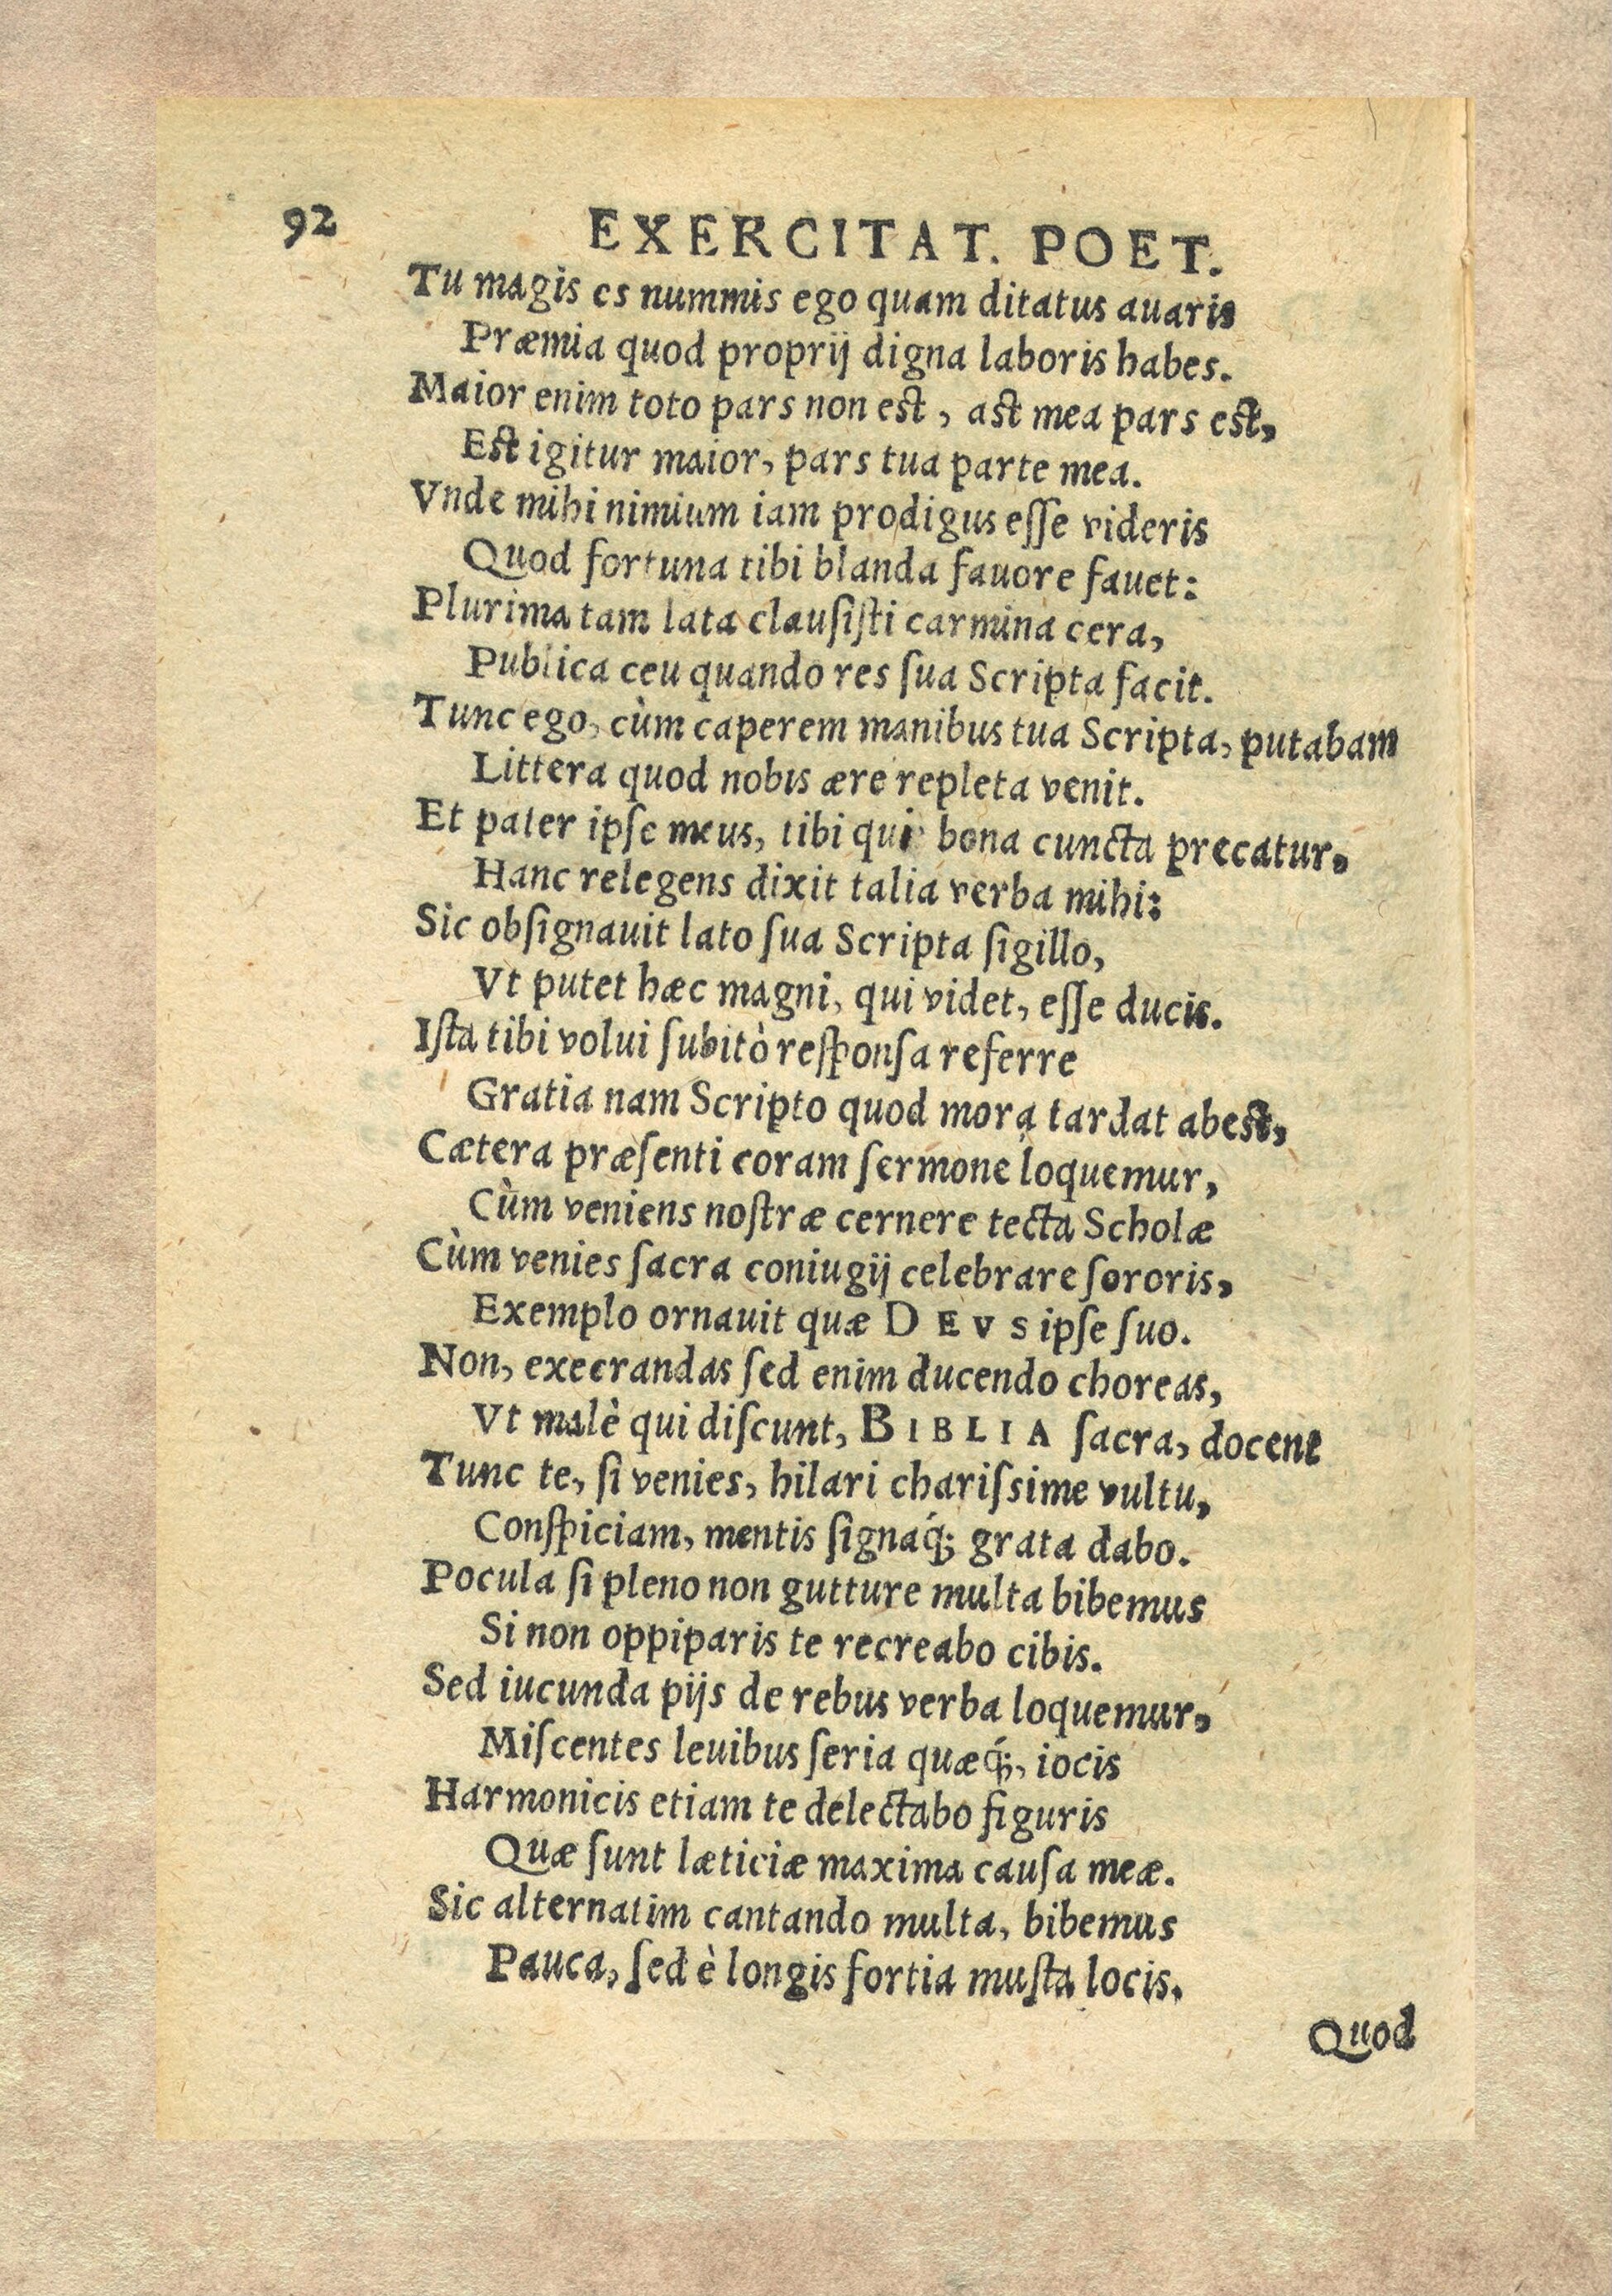 92
EXERCITAT. POET.
Tu magis es nummis ego quam ditatus auaris
Præmia quod proprij digna laboris habes.
Maior enim toto pars non est, ast mea pars est,
Est igitur maior, pars tua parte mea.
Vnde mihi nimium iam prodigus eſſe videris
Quod fortuna tibi blanda fauore fauet:
Plurima tam lata clauſiſti carmina cera,
Publica ceu quando res ſua Scripta facit.
Tunc ego, cùm caperem manibus tua Scripta, putabam
Littera quod nobis ære repleta venit.
Et pater ipſe meus, tibi qui bona cuncta precatur,
Hanc relegens dixit talia verba mihi:
Sic obſignauit lato ſua Scripta ſigillo,
Vt putet hæc magni, qui videt, eſſe ducis.
Iſta tibi volui ſubitò reſponſa referre
Gratia nam Scripto quod mora tardat abest,
Cætera præſenti coram ſermone loquemur,
Cùm veniens noſtræ cernere tecta Scholæ
Cùm venies ſacra coniugij celebrare ſororis,
Exemplo ornauit quæ DEVS ipſe ſuo.
Non, execrandas ſed enim ducendo choreas,
Vt malè qui diſcunt, BIBLIA ſacra, docent
Tunc te, ſi venies, hilari chariſsime vultu,
Conſpiciam, mentis ſignaq́; grata dabo.
Pocula ſi pleno non gutture multa bibemus
Si non oppiparis te recreabo cibis.
Sed iucunda pijs de rebus verba loquemur,
Miſcentes leuibus ſeria quæq́;, iocis
Harmonicis etiam te delectabo figuris
Quæ ſunt læticiæ maxima cauſa meæ.
Sic alternatim cantando multa, bibemus
Pauca, ſed è longis fortia muſta locis.
Quod